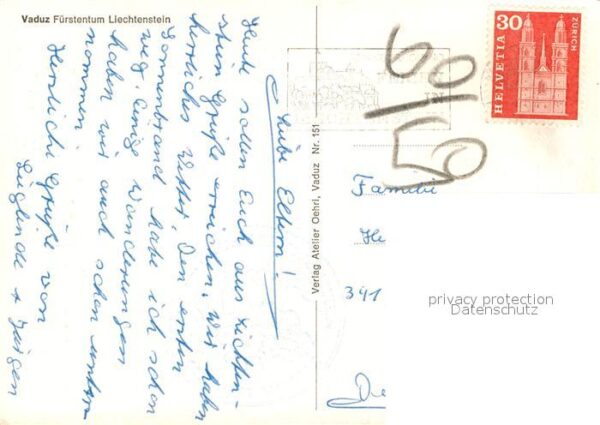 Vaduz Fürstentum Liechtenstein
Liebe Eltern!
Heute sollen Euch aus Lichten-
stein Grüße erreichen. Wir haben
herrliches Wetter. Den ersten
Sonnenbrand habe ich schon
weg. Einige Wanderungen
haben wir auch schon unter-
nommen.
Herzliche Grüße von
Sieglinde + Jürgen
Verlag Atelier Oehri, Vaduz Nr. 151
HELVETIA
30
ZÜRICH
60/50
Familie
He
341
privacy protection
Datenschutz